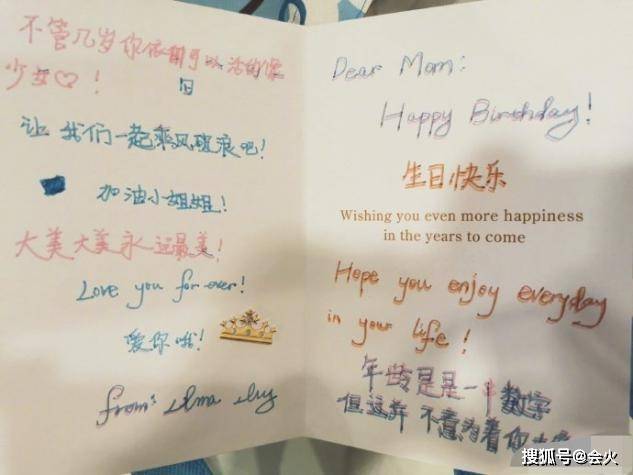 不管几岁你依可以活的像
少女♡！
旧
让我们一起乘风破浪吧！
加油小姐姐！
大美大美永远最美！
Love you for ever!
爱你哦！
from:
Dear Mom:
Happy Birthday!
生日快乐
Wishing you even more happiness
in the years to come
Hope you enjoy everyday
in your life!
年龄是是一串数字
但这并不意为着你
搜狐号@会火